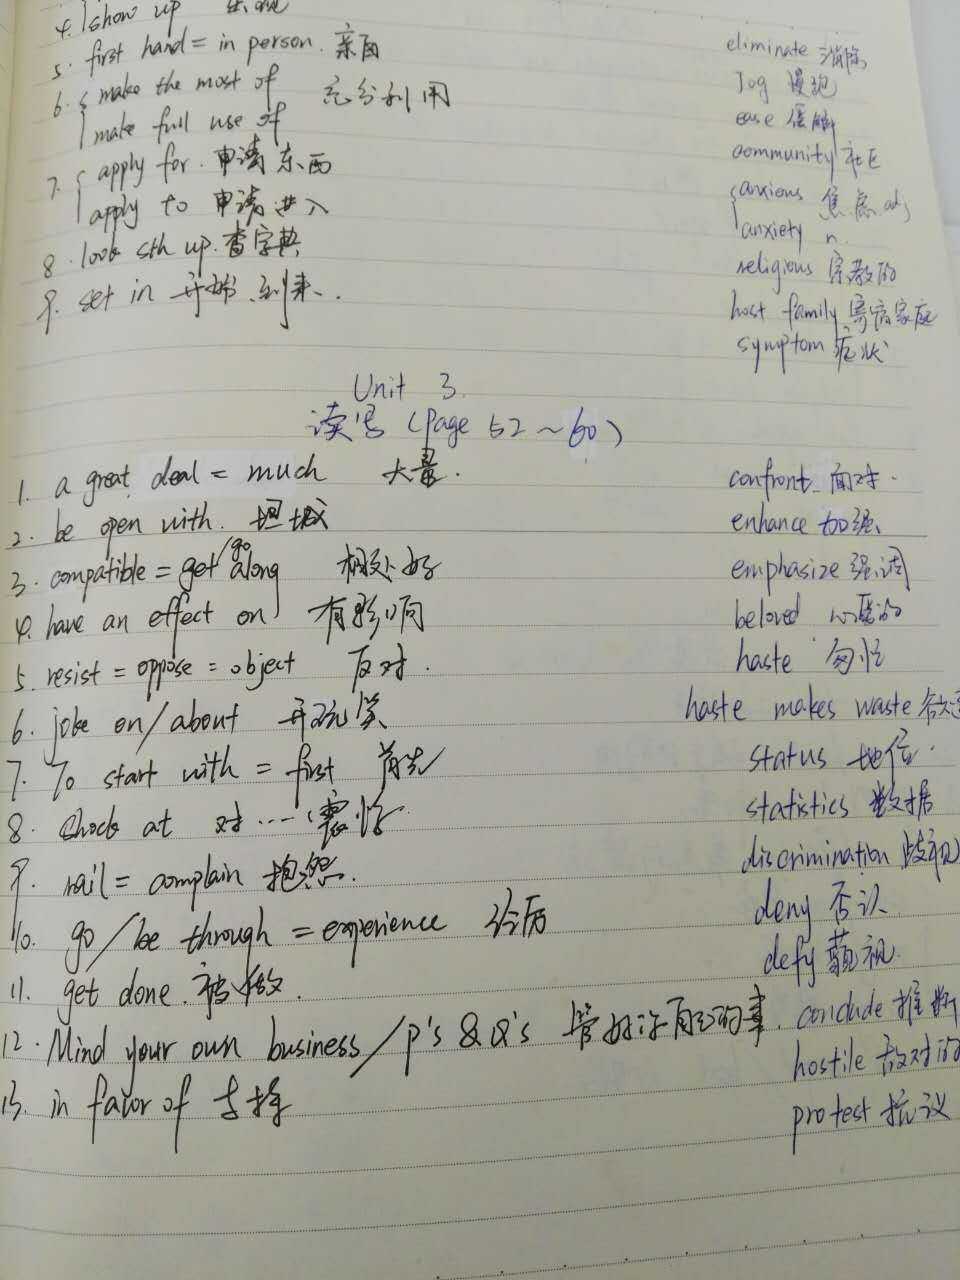 4. show up 出现
5. first hand = in person. 亲自
6. make the most of
充分利用
make full use of
7. apply for. 申请东西
apply to 申请进入
8. look sth up. 查字典
9. set in 开始、到来.
eliminate 消除
Jog 慢跑
ease 缓解
community 社区
anxious 焦虑 adj
anxiety n.
religious 宗教的
host family 寄宿家庭
symptom 症状
Unit 3.
读写 (Page 52 ~ 60)
1. a great deal = much 大量.
2. be open with. 坦诚
3. compatible = get/go along 相处好
4. have an effect on 有影响
5. resist = oppose = object 反对.
6. joke on/about 开玩笑
7. To start with = first 首先
8. Shock at 对……震惊
9. rail = complain 抱怨.
10. go/be through = experience 经历
11. get done. 被做.
12. Mind your own business/P's & Q's 管好你自己的事.
13. in favor of 支持
confront 面对.
enhance 加强
emphasize 强调
beloved 心爱的
haste 匆忙
haste makes waste 欲速
status 地位.
statistics 数据
discrimination 歧视
deny 否认
defy 藐视.
conclude 推断
hostile 敌对的
protest 抗议